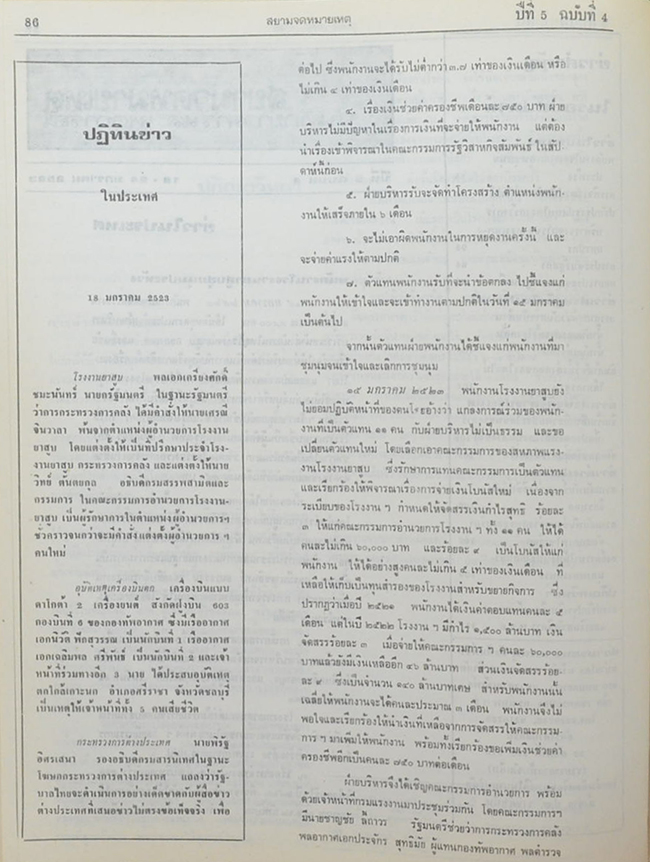 86
สยามจดหมายเหตุ
ปีที่ 5 ฉบับที่ 4
ปฏิทินข่าว
ในประเทศ
18 มกราคม 2523
โรงงานยาสูบ พลเอกเกรียงศักดิ์
ชมะนันทน์ นายกรัฐมนตรี ในฐานะรัฐมนตรี
ว่าการกระทรวงการคลัง ได้มีคำสั่งให้นายเศรณี
จินวาลา พ้นจากตำแหน่งผู้อำนวยการโรงงาน
ยาสูบ โดยแต่งตั้งให้เป็นที่ปรึกษาประจำโรง-
งานยาสูบ กระทรวงการคลัง และแต่งตั้งให้นาย
วิทย์ ตันตยกุล อธิบดีกรมสรรพสามิตและ
กรรมการ ในคณะกรรมการอำนวยการโรงงาน-
ยาสูบ เป็นผู้รักษาการในตำแหน่งผู้อำนวยการฯ
ชั่วคราวจนกว่าจะมีคำสั่งแต่งตั้งผู้อำนวยการ ฯ
คนใหม่
อุบัติเหตุเครื่องบินตก เครื่องบินแบบ
ดาโกต้า 2 เครื่องยนต์ สังกัดฝูงบิน 603
กองบินที่ 6 ของกองทัพอากาศ ซึ่งมีเรืออากาศ
เอกนิวัติ พึ่งสุวรรณ เป็นนักบินที่ 1 เรืออากาศ
เอกเฉลิมพล ศรีพันธ์ เป็นนักบินที่ 2 และเจ้า
หน้าที่ร่วมทางอีก 3 นาย ได้ประสบอุบัติเหตุ
ตกใกล้เกาะนก อำเภอศรีราชา จังหวัดชลบุรี
เป็นเหตุให้เจ้าหน้าที่ทั้ง 5 คนเสียชีวิต
กระทรวงการต่างประเทศ นายพิรัฐ
อิศรเสนา รองอธิบดีกรมสารนิเทศในฐานะ
โฆษกกระทรวงการต่างประเทศ แถลงว่ารัฐ-
บาลไทยจะดำเนินการอย่างเด็ดขาดกับผู้สื่อข่าว
ต่างประเทศที่เสนอข่าวไม่ตรงข้อเท็จจริง เพื่อ
ต่อไป ซึ่งพนักงานจะได้รับไม่ต่ำกว่า ๓.๗ เท่าของเงินเดือน หรือ
ไม่เกิน ๔ เท่าของเงินเดือน
๔. เรื่องเงินช่วยค่าครองชีพเดือนละ ๗๕๐ บาท ฝ่าย
บริหารไม่มีปัญหาในเรื่องการเงินที่จะจ่ายให้พนักงาน แต่ต้อง
นำเรื่องเข้าพิจารณาในคณะกรรมการรัฐวิสาหกิจสัมพันธ์ ในสัป-
ดาห์นี้ก่อน
๕. ฝ่ายบริหารรับจะจัดทำโครงสร้าง ตำแหน่งพนัก-
งานให้เสร็จภายใน ๖ เดือน
๖. จะไม่เอาผิดพนักงานในการหยุดงานครั้งนี้ และ
จะจ่ายค่าแรงให้ตามปกติ
๗. ตัวแทนพนักงานรับที่จะนำข้อตกลง ไปชี้แจงแก่
พนักงานให้เข้าใจและจะเข้าทำงานตามปกติในวันที่ ๑๕ มกราคม
เป็นต้นไป
จากนั้นตัวแทนฝ่ายพนักงานได้ชี้แจงแก่พนักงานที่มา
ชุมนุมจนเข้าใจและเลิกการชุมนุม
๑๕ มกราคม ๒๕๒๓ พนักงานโรงงานยาสูบยัง
ไม่ยอมปฏิบัติหน้าที่ของตนโดยอ้างว่า แถลงการณ์ร่วมของพนัก-
งานที่เป็นตัวแทน ๑๑ คน กับฝ่ายบริหารไม่เป็นธรรม และขอ
เปลี่ยนตัวแทนใหม่ โดยเลือกเอาคณะกรรมการของสหภาพแรง-
งานโรงงานยาสูบ ซึ่งรักษาการแทนคณะกรรมการเป็นตัวแทน
และเรียกร้องให้พิจารณาเรื่องการจ่ายเงินโบนัสใหม่ เนื่องจาก
ระเบียบของโรงงาน ฯ กำหนดให้จัดสรรเงินกำไรสุทธิ ร้อยละ
๓ ให้แก่คณะกรรมการอำนวยการโรงงาน ฯ ทั้ง ๑๑ คน ให้ได้
คนละไม่เกิน ๖๐,๐๐๐ บาท และร้อยละ ๙ เป็นโบนัสให้แก่
พนักงาน ให้ได้อย่างสูงคนละไม่เกิน ๕ เท่าของเงินเดือน ที่
เหลือให้เก็บเป็นทุนสำรองของโรงงานสำหรับขยายกิจการ ซึ่ง
ปรากฏว่าเมื่อปี ๒๕๒๑ พนักงานได้เงินค่าตอบแทนคนละ ๕
เดือน แต่ในปี ๒๕๒๒ โรงงาน ฯ มีกำไร ๑,๕๐๐ ล้านบาท เงิน
จัดสรรร้อยละ ๓ เมื่อจ่ายให้คณะกรรมการ ฯ คนละ ๖๐,๐๐๐
บาทแล้วยังมีเงินเหลืออีก ๔๖ ล้านบาท ส่วนเงินจัดสรรร้อย-
ละ ๙ ซึ่งเป็นจำนวน ๑๔๐ ล้านบาทเศษ สำหรับพนักงานนั้น
เฉลี่ยให้พนักงานจะได้คนละประมาณ ๓ เดือน พนักงานจึงไม่
พอใจและเรียกร้องให้นำเงินที่เหลือจากการจัดสรรให้คณะกรรม-
การ ฯ มาเพิ่มให้พนักงาน พร้อมทั้งเรียกร้องขอเพิ่มเงินช่วยค่า
ครองชีพอีกเป็นคนละ ๗๕๐ บาทต่อเดือน
ฝ่ายบริหารจึงได้เชิญคณะกรรมการอำนวยการ พร้อม
ด้วยเจ้าหน้าที่กรมแรงงานมาประชุมร่วมกัน โดยคณะกรรมการฯ
มีนายชาญชัย ลี้ถาวร รัฐมนตรีช่วยว่าการกระทรวงการคลัง
พลอากาศเอกประจักร สุทธิมัย ผู้แทนกองทัพอากาศ พลตำรวจ